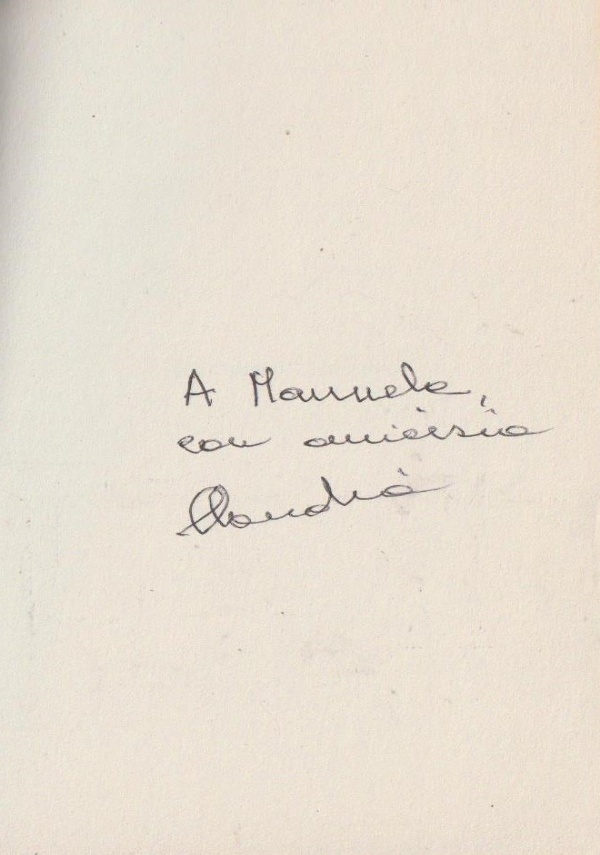 A Manuela,
con amicizia
Claudia